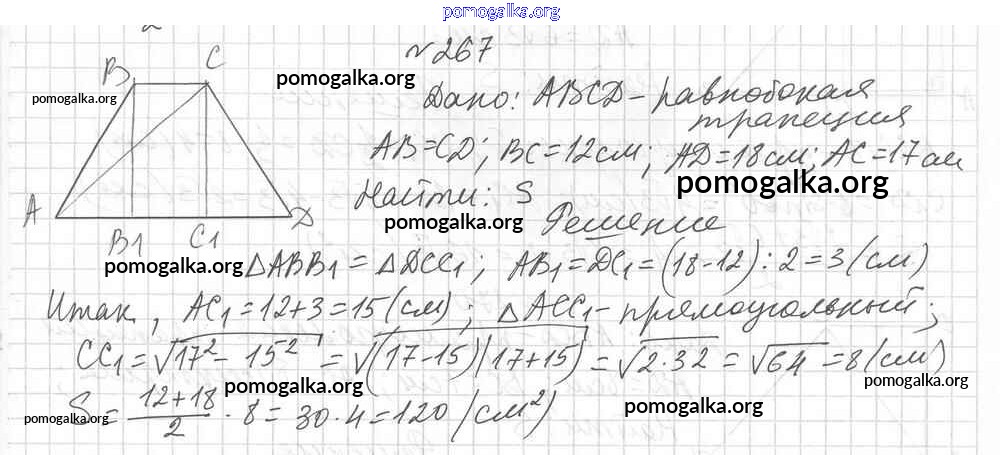 pomogalka.org
№267
B C
pomogalka.org
pomogalka.org
Дано: ABCD – равнобокая
трапеция
AB=CD; BC=12см; AD=18см; AC=17см
pomogalka.org
Найти: S
pomogalka.org
A D
Решение
B1 C1
pomogalka.org
△ABB1 = △DCC1; AB1=DC1=(18-12):2=3(см)
Итак, AC1=12+3=15(см); △ACC1-прямоугольный;
CC1=√17²-15² = √(17-15)(17+15) = √2·32 = √64 =8(см)
pomogalka.org
pomogalka.org
S= 12+18/2 · 8= 30·4=120 (см²)
pomogalka.org
pomogalka.org